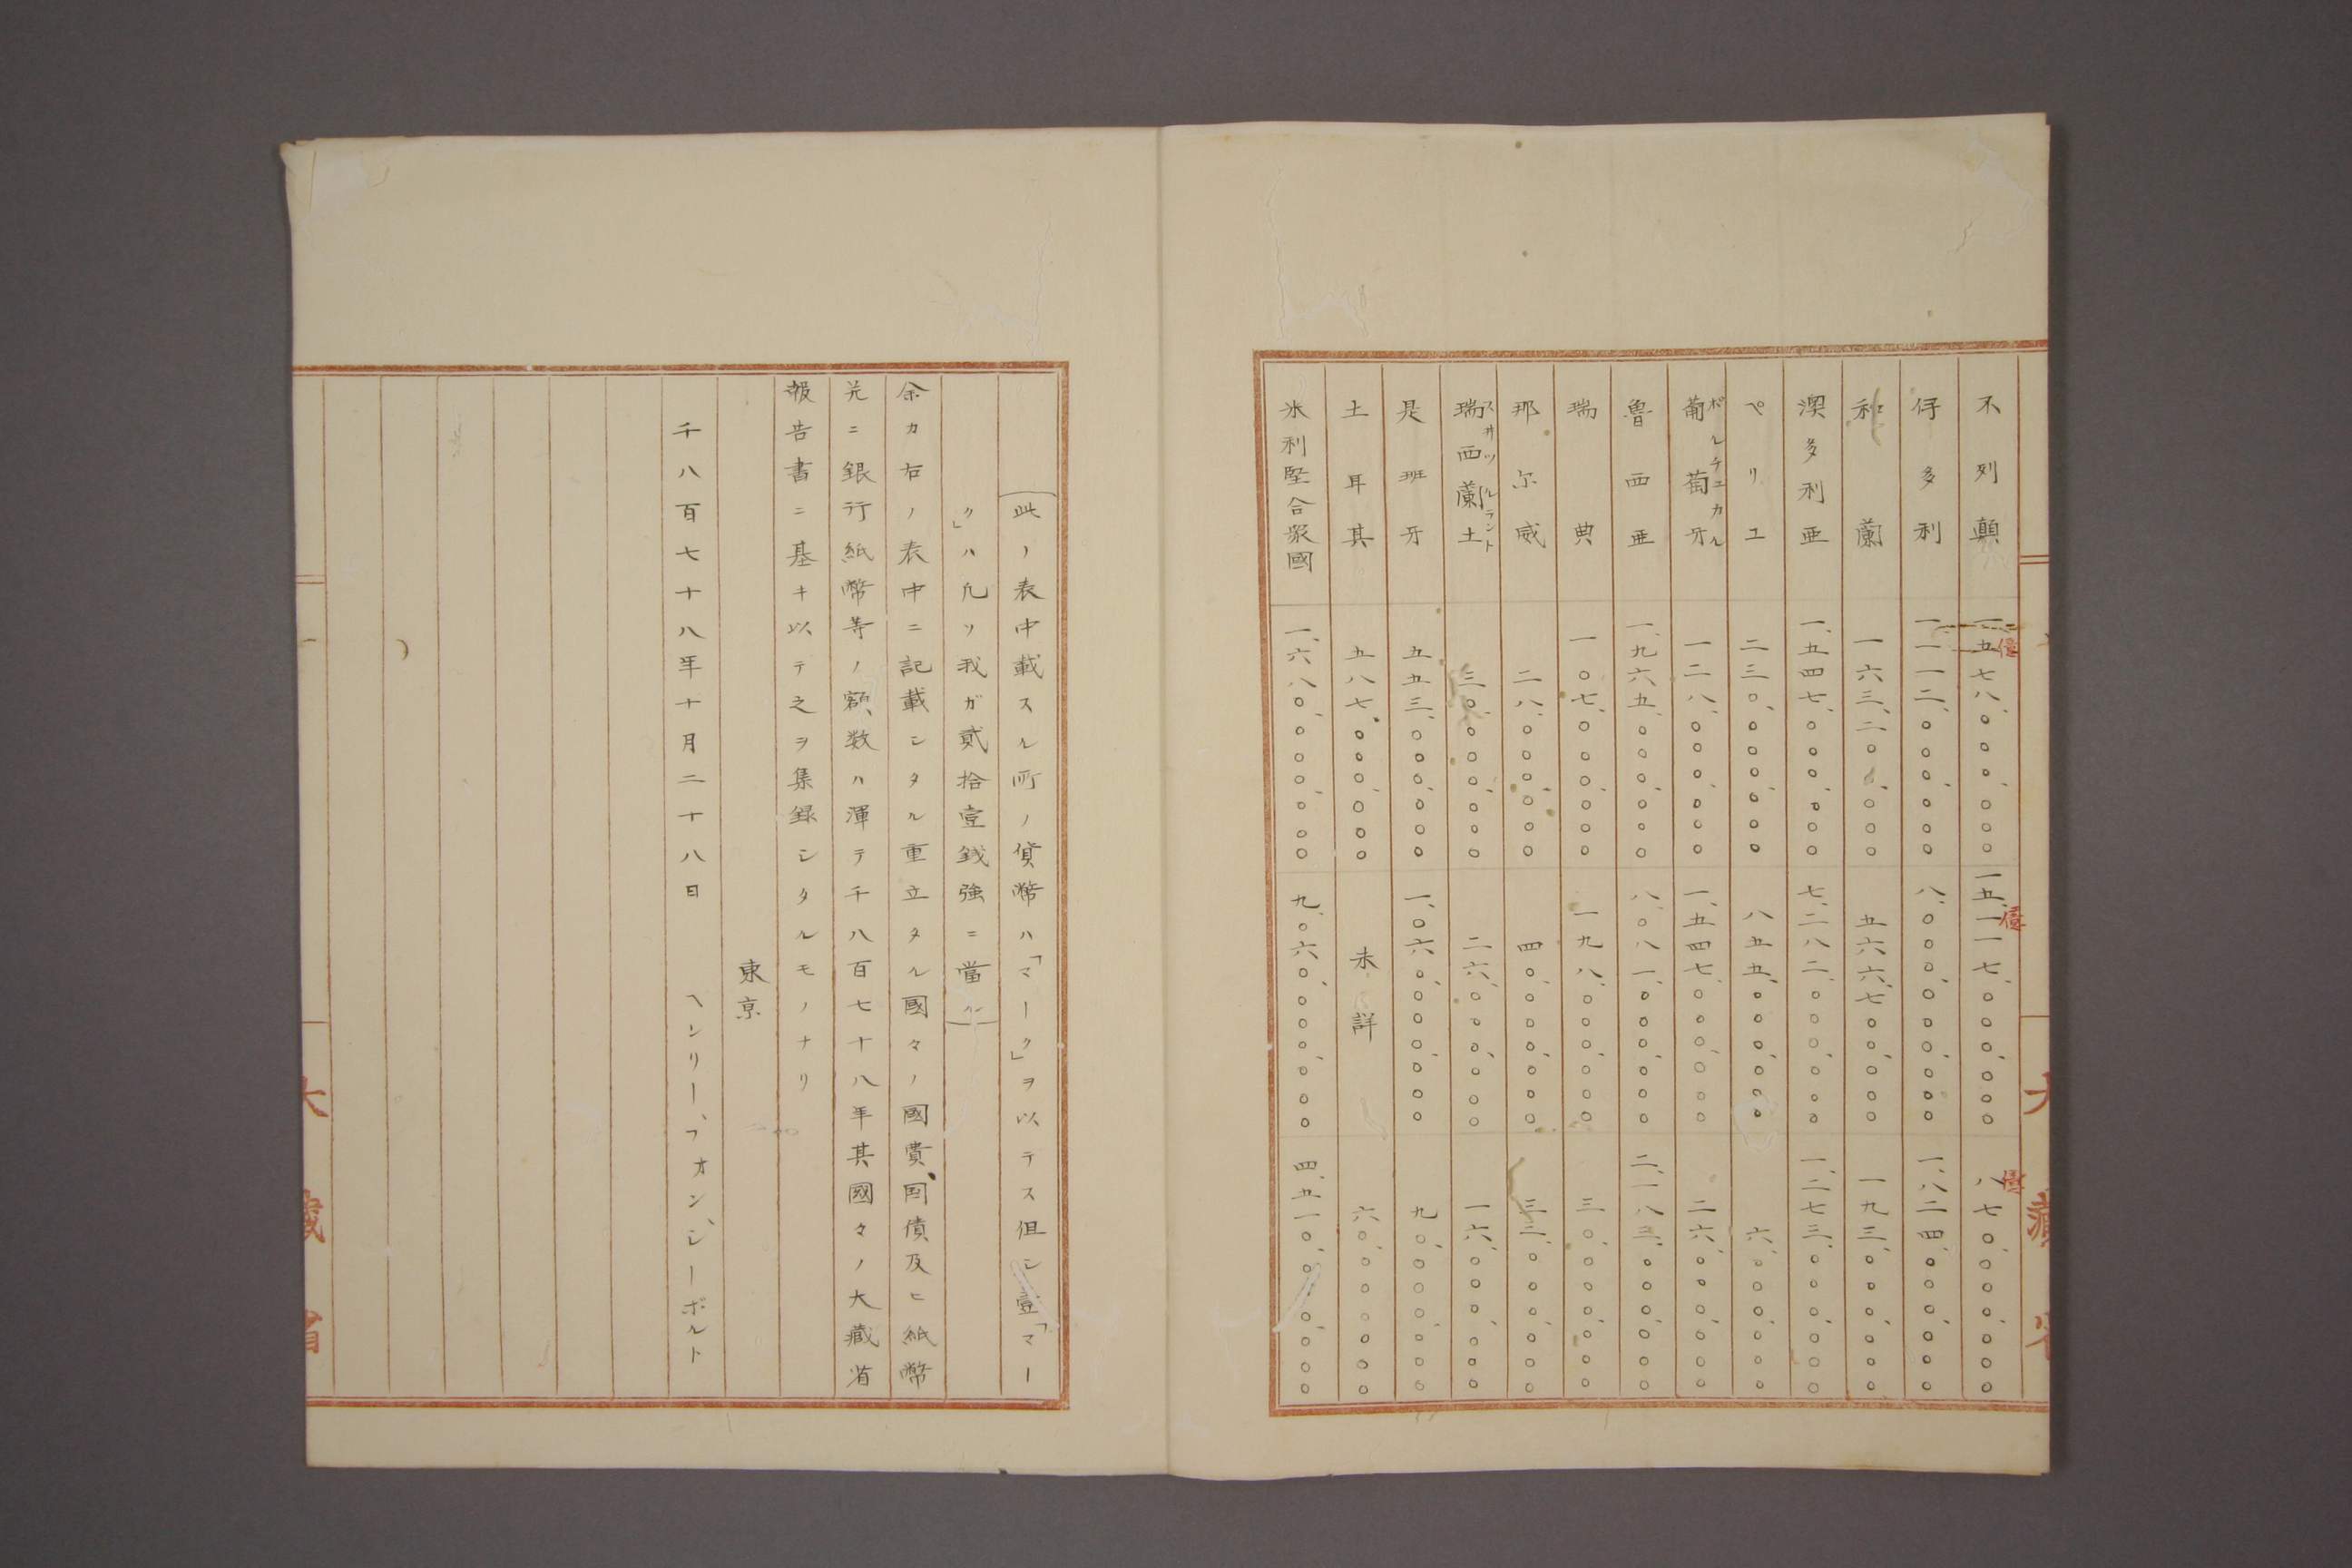 億
億
億
不列顛 一、五七八、〇〇〇、〇〇〇 一五、一一七、〇〇〇、〇〇〇 八七〇、〇〇〇、〇〇〇
伊多利 一、一一二、〇〇〇、〇〇〇 八、〇〇〇、〇〇〇、〇〇〇 一、八二四、〇〇〇、〇〇〇
和蘭 一六三、二〇〇、〇〇〇 五六六、七〇〇、〇〇〇 一九三、〇〇〇、〇〇〇
澳多利亜 一、五四七、〇〇〇、〇〇〇 七、二八二、〇〇〇、〇〇〇 一、二七三、〇〇〇、〇〇〇
ペリユ 二三〇、〇〇〇、〇〇〇 八五五、〇〇〇、〇〇〇 六、〇〇〇、〇〇〇
ポルチユカル
葡萄牙 一二八、〇〇〇、〇〇〇 一、五四七、〇〇〇、〇〇〇 二六、〇〇〇、〇〇〇
魯西亜 一、九六五、〇〇〇、〇〇〇 八、〇八一、〇〇〇、〇〇〇 二、一八三、〇〇〇、〇〇〇
瑞典 一〇七、〇〇〇、〇〇〇 一九八、〇〇〇、〇〇〇 三〇、〇〇〇、〇〇〇
那尓威 二八、〇〇〇、〇〇〇 四〇、〇〇〇、〇〇〇 三三、〇〇〇、〇〇〇
スヰツルラント
瑞西蘭土 三〇、〇〇〇、〇〇〇 二六、〇〇〇、〇〇〇 一六、〇〇〇、〇〇〇
是班牙 五五三、〇〇〇、〇〇〇 一、〇六〇、〇〇〇、〇〇〇 九〇、〇〇〇、〇〇〇
土耳其 五八七、〇〇〇、〇〇〇 未詳 六〇、〇〇〇、〇〇〇
米利堅合衆國 一、六八〇、〇〇〇、〇〇〇 九、〇六〇、〇〇〇、〇〇〇 四、五一〇、〇〇〇、〇〇〇
(此ノ表中載スル所ノ貨幣ハ「マーク」ヲ以テス但シ壹「マー
ク」ハ凡ソ我ガ貳拾壹銭強ニ當ル)
余カ右ノ表中ニ記載シタル重立タル國々ノ國費、国債及ヒ紙幣
并ニ銀行紙幣等ノ額、数ハ渾テ千八百七十八年其國々ノ大藏省
報告書ニ基キ以テ之ヲ集録シタルモノナリ
東京
千八百七十八年十月二十八日 ヘンリー、フオン、シーボルト
大藏省